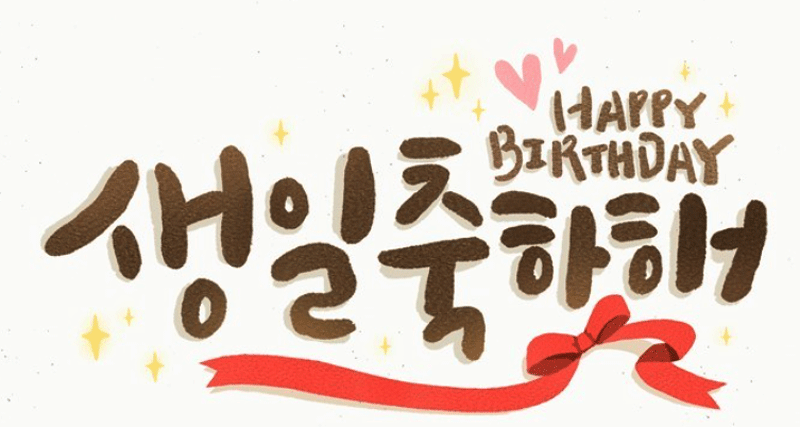 HAPPY
BIRTHDAY
생일축하해